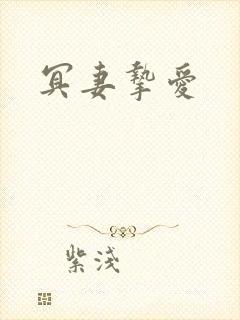 冥妻摯愛
紫淺